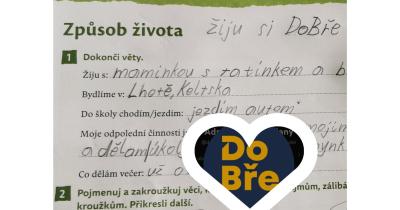 Způsob života žiju si DoBře
1 Dokonči věty.
Žiju s: maminkou s tatínkem a b
Bydlíme v: Lhotě, Keltsko
Do školy chodím/jezdím: jezdím autem
Moje odpolední činnosti j
a dělam úkoly
Do
Bře
Co dělám večer: už
2 Pojmenuj a zakroužkuj věci,
kroužkům. Přikresli další.